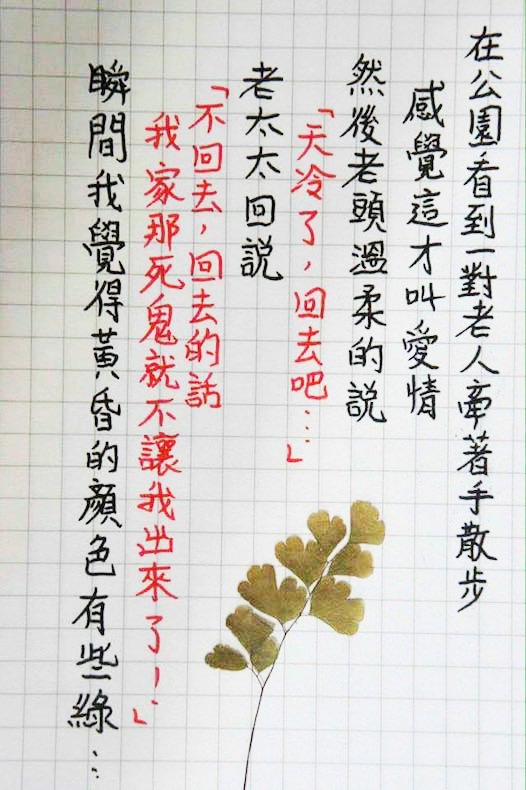 在公園看到一對老人牽著手散步
感覺這才叫愛情
然後老頭溫柔的説
「天冷了，回去吧…」
老太太回説
「不回去，回去的話
我家那死鬼就不讓我出來了！」
瞬間我覺得黃昏的顏色有些綠…